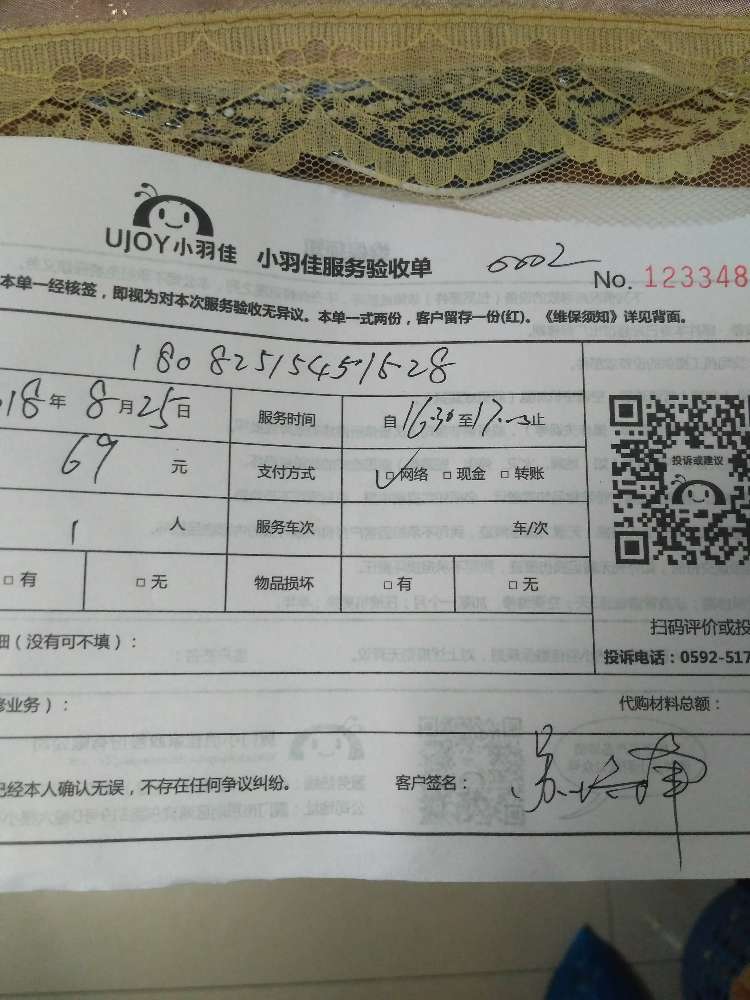 UJOY小羽佳 小羽佳服务验收单 0002 No. 123348
本单一经核签，即视为对本次服务验收无异议。本单一式两份，客户留存一份(红)。《维保须知》详见背面。
18年 8月25日 服务时间 自16:30至17:00止
69 元 支付方式 ✓□网络 □现金 □转账
投诉或建议
1 人 服务车次 车/次
□有 □无 物品损坏 □有 □无
扫码评价或投
细（没有可不填）：
投诉电话：0592-517
修业务）： 代购材料总额：
已经本人确认无误，不存在任何争议纠纷。 客户签名：